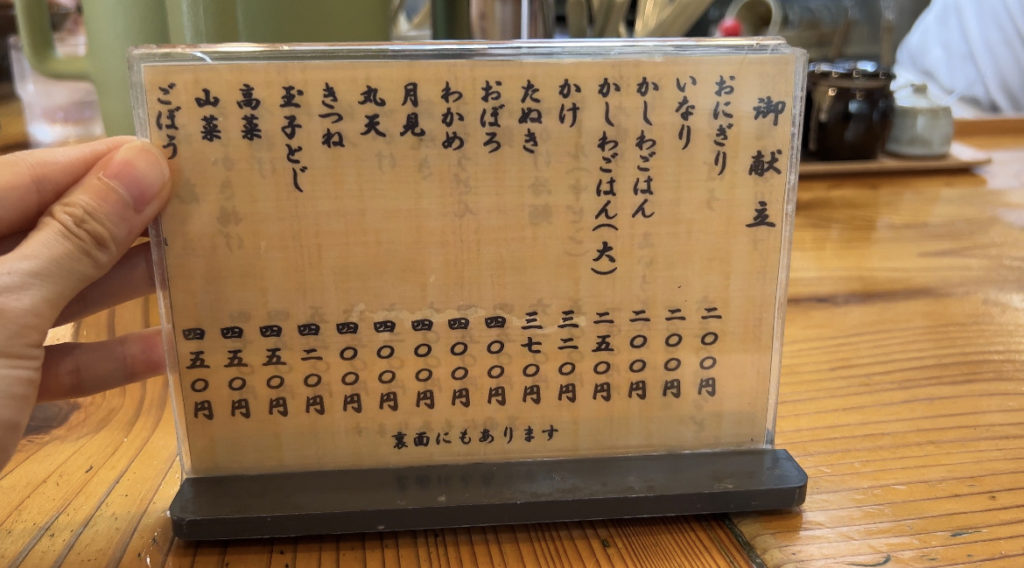 御献立
おにぎり 二〇〇円
いなり 二〇〇円
かしわごはん 二〇〇円
かしわごはん(大) 二五〇円
かけ 三二〇円
たぬき 三七〇円
おぼろ 四〇〇円
わかめ 四〇〇円
月見 四〇〇円
丸天 四〇〇円
きつね 四〇〇円
玉子とじ 四二〇円
高菜 四五〇円
山菜 四五〇円
ごぼう 四五〇円
裏面にもあります